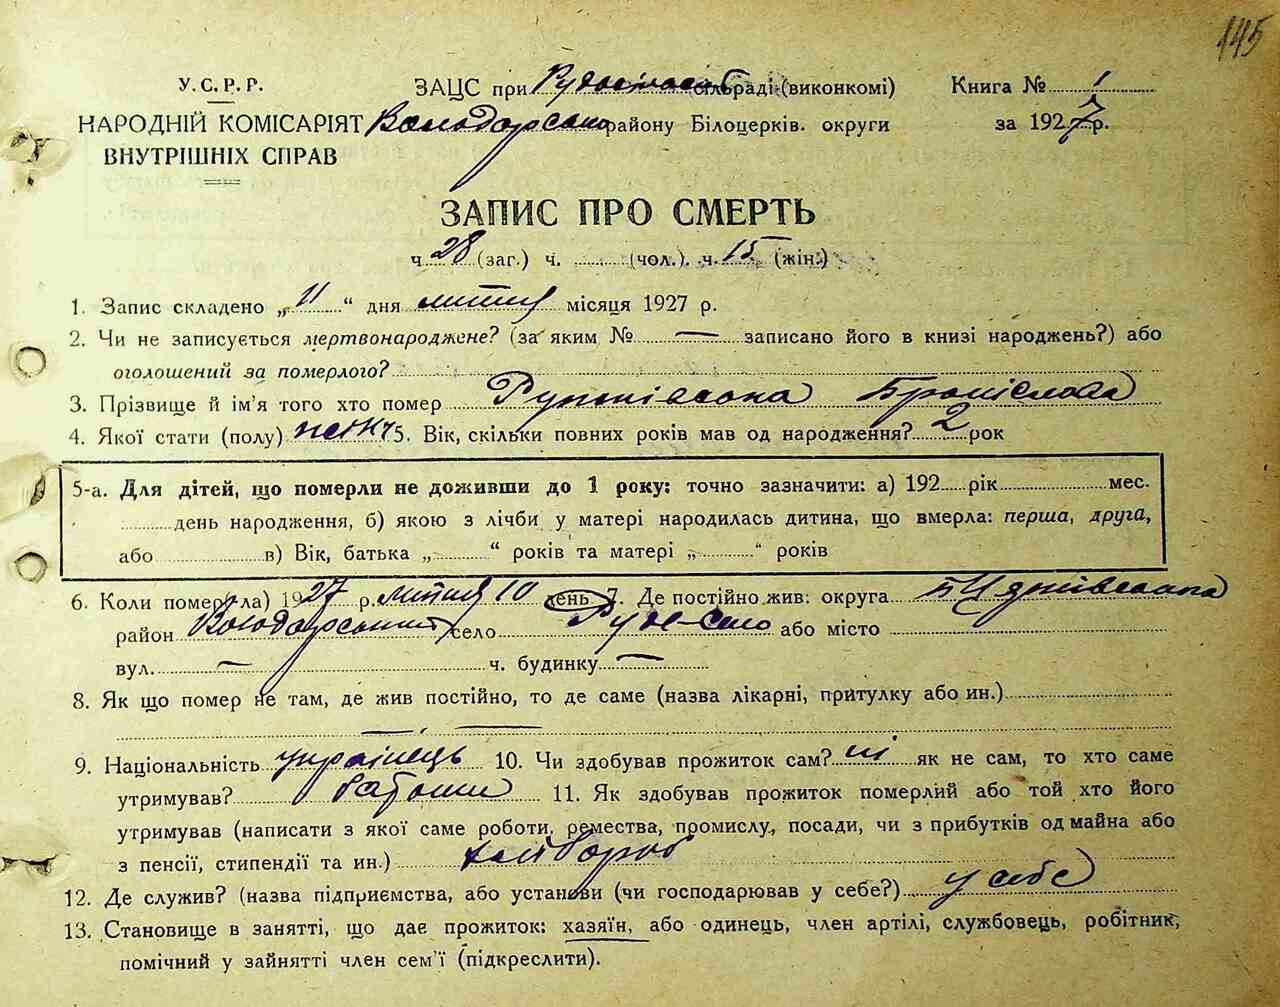 145
У.С.Р.Р.
НАРОДНІЙ КОМІСАРІЯТ
ВНУТРІШНІХ СПРАВ
ЗАЦС при сільраді (виконкомі)
Володарського району Білоцерків. округи
Книга № 1
за 1927 р.
ЗАПИС ПРО СМЕРТЬ
ч. 28 (заг.) ч. (чол.). ч. 15 (жін.)
1. Запис складено „11“ дня липня місяця 1927 р.
2. Чи не записується мертвонароджене? (за яким № — записано його в книзі народжень?) або
оголошений за померлого?
3. Прізвище й ім'я того хто помер Броніслава
4. Якої стати (полу) жін 5. Вік, скільки повних років мав од народження? 2 рок
5-а. Для дітей, що померли не доживши до 1 року: точно зазначити: а) 192 рік мес.
день народження, б) якою з лічби у матері народилась дитина, що вмерла: перша, друга,
або в) Вік, батька „ “ років та матері „ “ років
6. Коли помер(ла) 1927 р. липня 10 день 7. Де постійно жив: округа
район Володарський село Руде-село або місто
вул. — ч. будинку —
8. Як що помер не там, де жив постійно, то де саме (назва лікарні, притулку або ин.)
— —
9. Національність українець 10. Чи здобував прожиток сам? ні як не сам, то хто саме
утримував? батьки 11. Як здобував прожиток померлий або той хто його
утримував (написати з якої саме роботи, ремества, промислу, посади, чи з прибутків од майна або
з пенсії, стипендії та ин.) хлібороб
12. Де служив? (назва підприємства, або установи (чи господарював у себе?) у себе
13. Становище в занятті, що дає прожиток: хазяїн, або одинець, член артілі, службовець, робітник,
помічний у зайнятті член сем'ї (підкреслити).